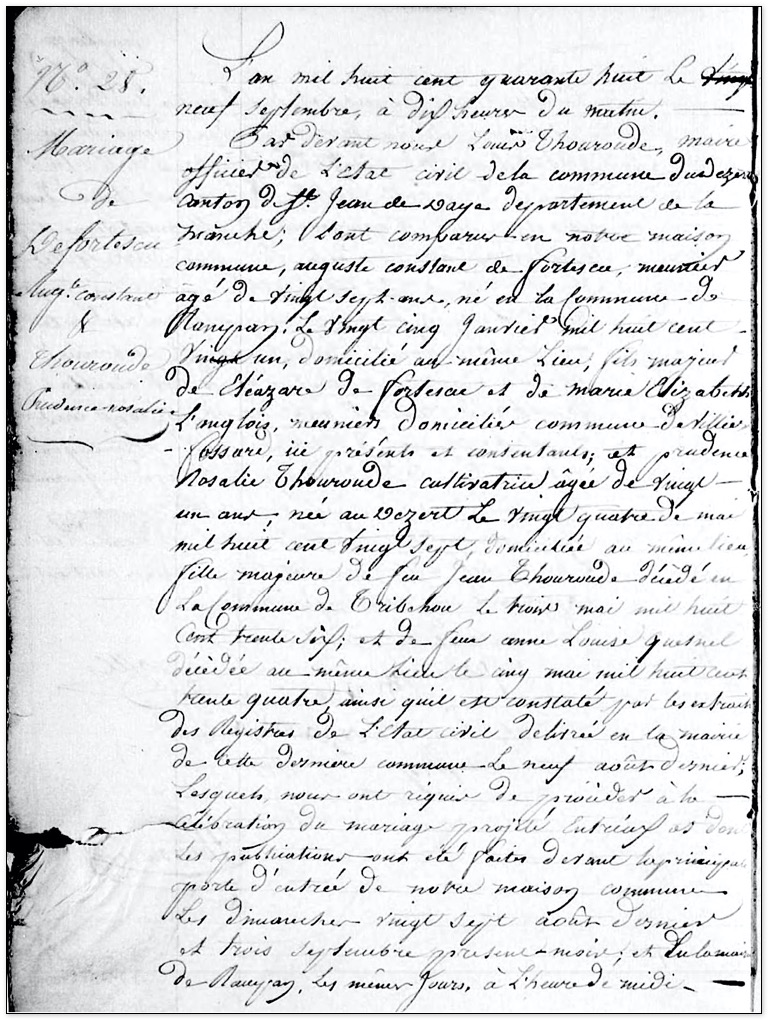 N.o 28.
Mariage
de
Defortescu
Aug.te constant
&
Thouroude
Prudence rosalie
L'an mil huit cent quarante huit Le
neuf Septembre, à dix heures du matin.
Par devant nous Louis Thouroude, maire
officier de L'Etat civil de la commune du Dezert
canton de St. Jean de Daye département de la
manche; Sont comparus en notre maison
commune, auguste constant de fortescu, meunier
agé de vingt sept ans, né en la Commune de
Rampan, Le vingt cinq Janvier mil huit cent
vingt un, domicilié au même Lieu, fils majeur
de Eléazare de fortescu et de marie Elizabeth
L'anglois, meuniers domiciliés commune de villiers
fossard, ici présents et consentants; et prudence
Rosalie Thouroude cultivatrice âgée de vingt
un ans, née au Dezert Le vingt quatre de mai
mil huit cent vingt sept, domiciliée au même lieu
fille majeure de feu Jean Thouroude décédé en
La Commune de Tribehou Le trois mai mil huit
Cent trente six; et de feue anne Louise quesnel
décédée au même Lieu le cinq mai mil huit cent
trente quatre, ainsi qu'il est constaté par les extraits
des Registres de L'Etat civil délivrés en la mairie
de cette dernière commune Le neuf août dernier;
Lesquels, nous ont requis de procéder à la
célébration du mariage projeté Entr'eux et dont
Les publications ont été faites devant la principale
porte d'entrée de notre maison commune
Les dimanches vingt sept août dernier
et trois septembre present mois; et
de Rampan, Les mêmes Jours, à L'heure de midi